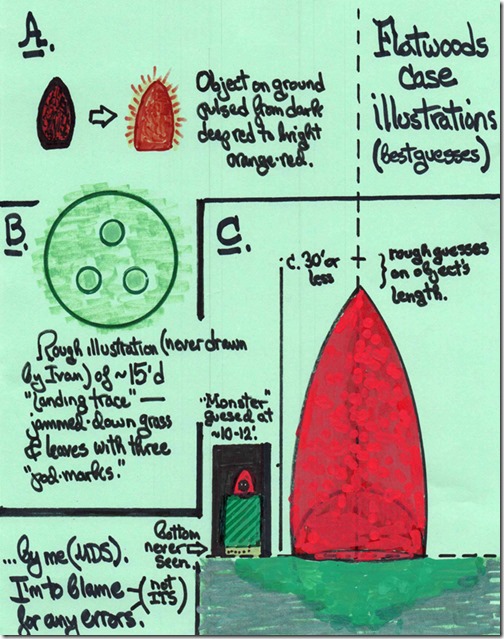 A.
Flatwoods
case
illustrations
(best guesses)
Object on ground
pulsed from dark
deep red to bright
orange-red.
B.
Rough illustration (never drawn
by Ivan) of ~15'd
"landing trace" —
jammed-down grass
& leaves with three
"pod-marks."
C.
c. 30' or
less
rough guesses
on object's
length.
"Monster"
guesed at
~10-12'.
Bottom
never
seen.
...by me (MDS).
I'm to blame
for any errors.
(not
ITS)